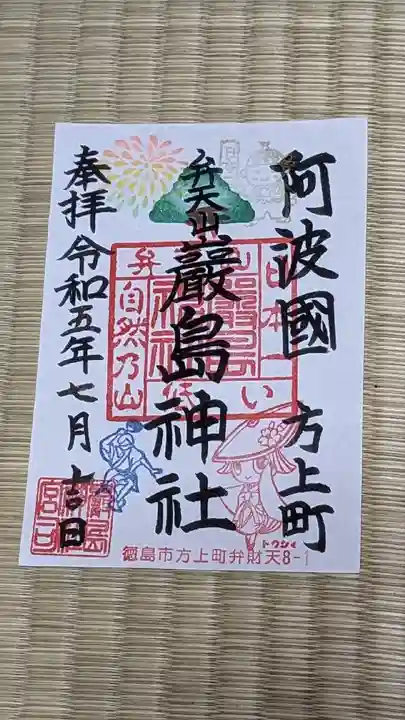 阿波國 方上町
弁天山
巖島神社
奉拝 令和五年七月十三日
日本一
低い
弁
山
自然乃山
トクシィ
徳島市方上町弁財天8-1